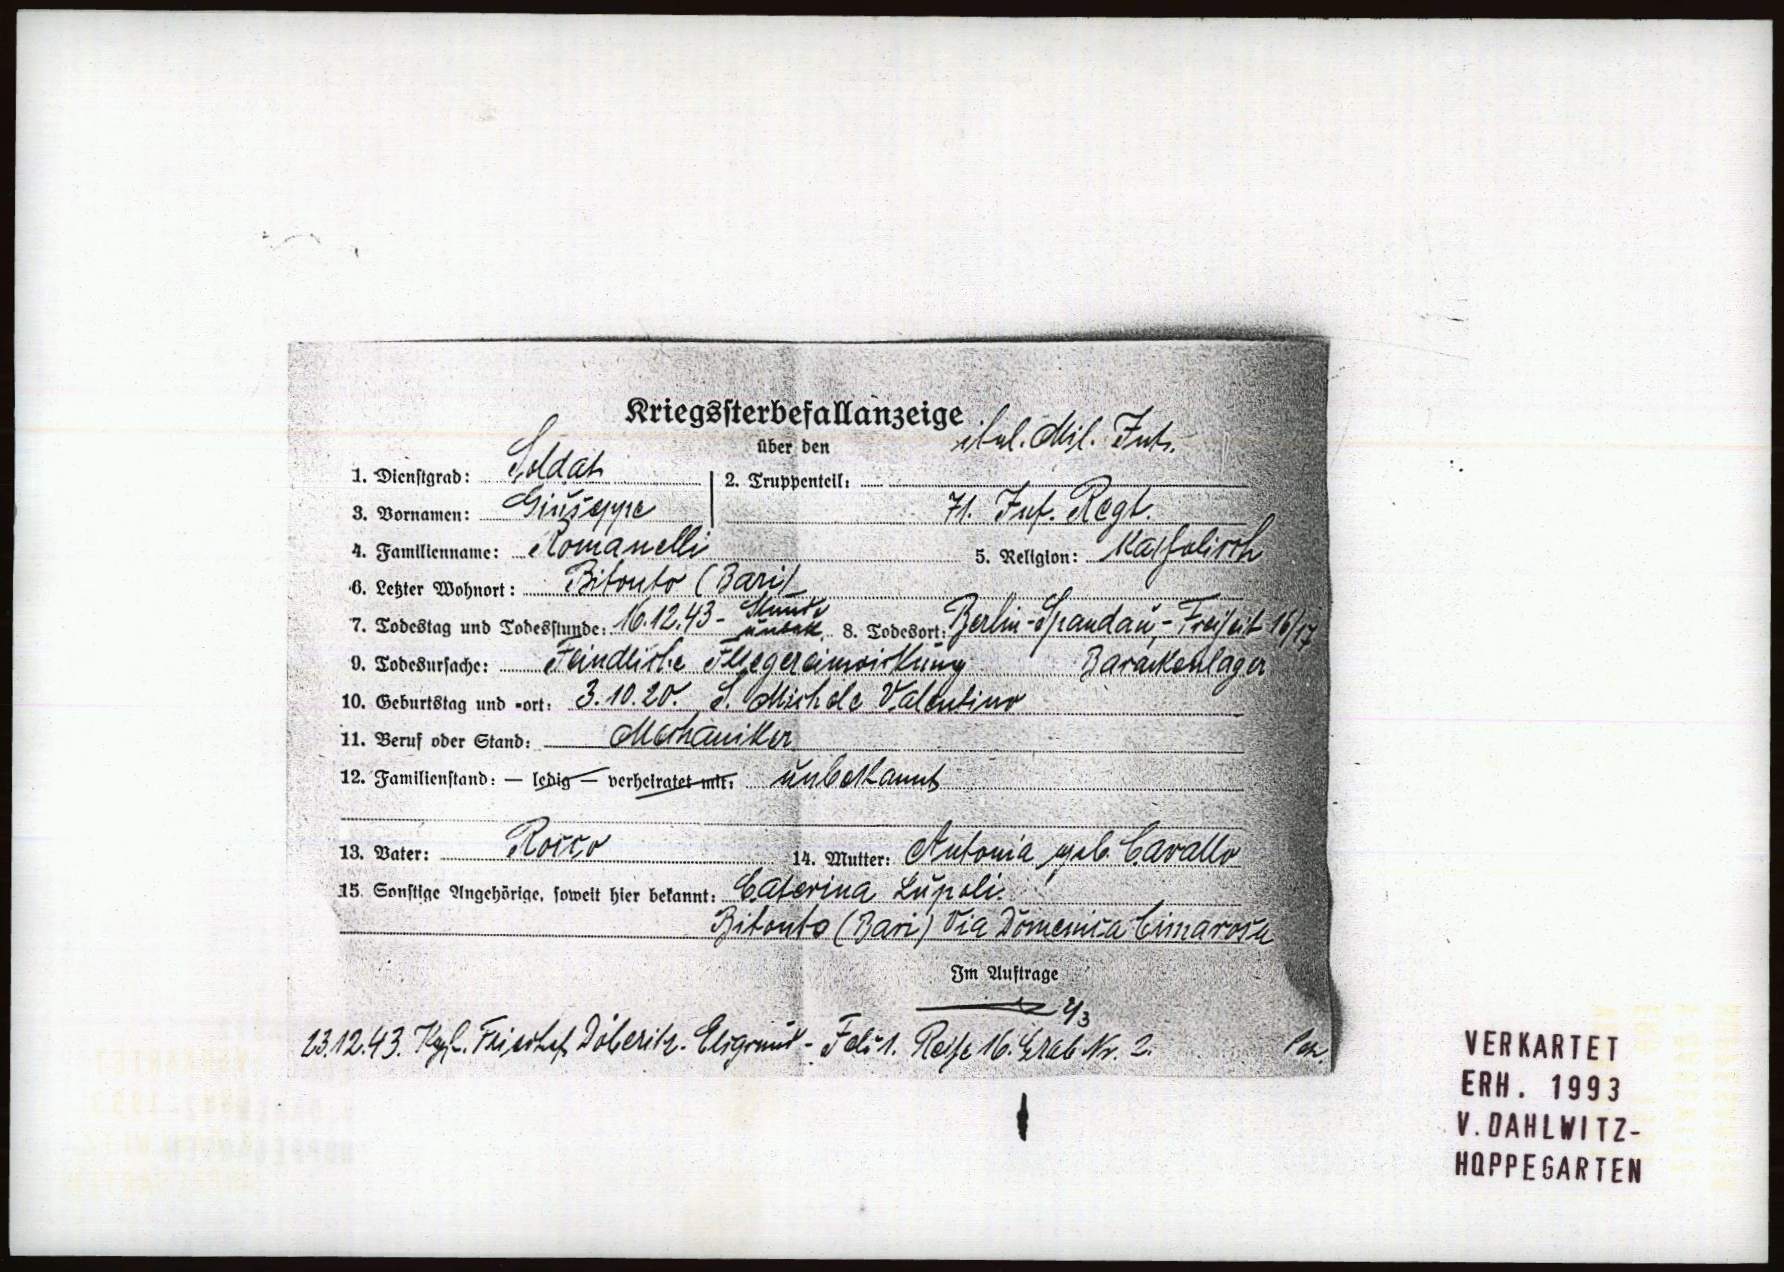 Kriegssterbefallanzeige
über den
ital. Mil. Int.
1. Dienstgrad: Soldat
2. Truppenteil:
3. Vornamen: Giuseppe
71. Inf. Regt.
4. Familienname: Romanelli 5. Religion: Katholisch
6. Letzter Wohnort: Bitonto (Bari)
7. Todestag und Todesstunde: 16.12.43 - Stunde unbek. 8. Todesort: Berlin-Spandau, - Freiheit 16/17
9. Todesursache: Feindliche Fliegereinwirkung Barackenlager
10. Geburtstag und -ort: 3.10.20. S. Michele Valentino
11. Beruf oder Stand: Mechaniker
12. Familienstand: — ledig — verheiratet mit: unbekannt
13. Vater: Rocco 14. Mutter: Antonia geb. Cavallo
15. Sonstige Angehörige, soweit hier bekannt: Caterina Lupoli.
Bitonto (Bari) Via Domenica Cimarosa
Im Auftrage
23.12.43. Kgf. Friedhof Döberitz-Elsgrund - Feld 1. Reihe 16. Grab Nr. 2.
VERKARTET
ERH. 1993
V. DAHLWITZ-
HOPPEGARTEN